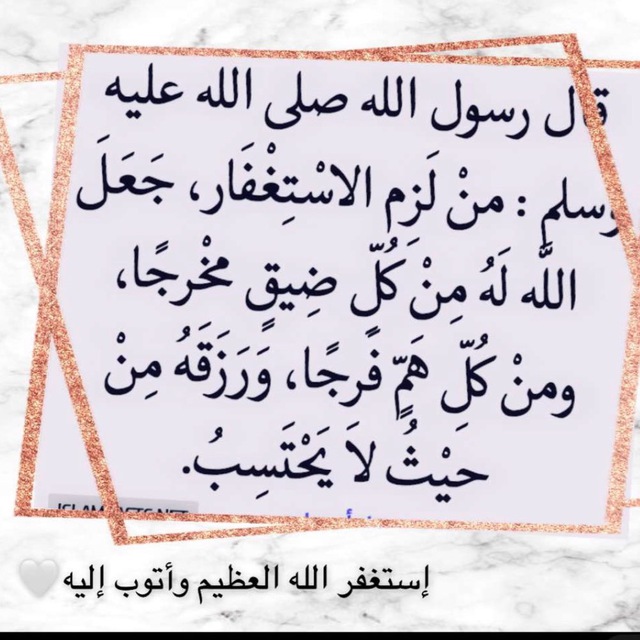 قال رسول الله صلى الله عليه
وسلم : منْ لَزم الاسْتِغْفَار، جَعَلَ
اللَّه لَهُ مِنْ كُلِّ ضِيقٍ مخْرجًا،
ومنْ كُلِّ هَمٍّ فَرجًا، وَرَزَقَهُ مِنْ
حيْثُ لاَ يَحْتَسِبُ.
إستغفر الله العظيم وأتوب إليه🤍